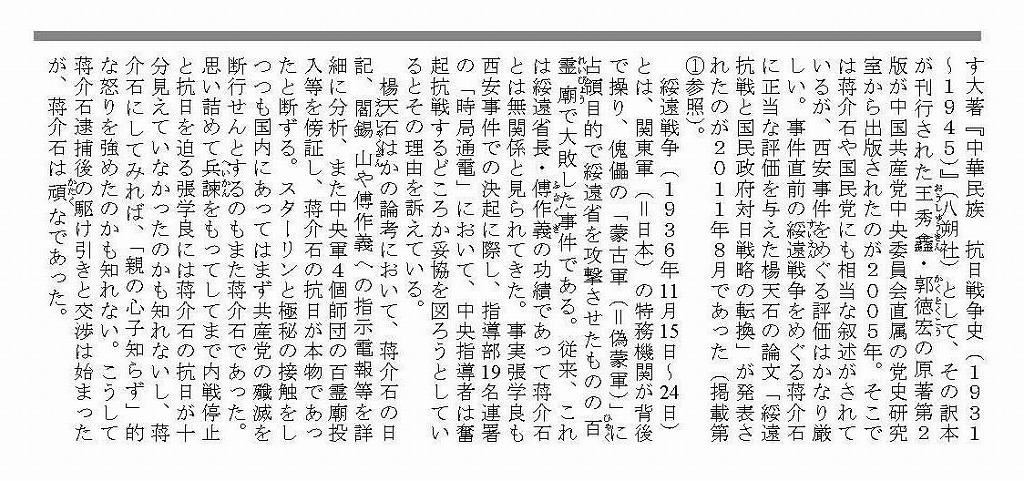 す大著『中華民族　抗日戦争史（１９３１
～１９４５）』（八朔社）として、その訳本
が刊行された王秀鑫・郭徳宏の原著第２
版が中国共産党中央委員会直属の党史研究
室から出版されたのが２００５年。そこで
は蒋介石や国民党にも相当な叙述がされて
いるが、西安事件をめぐる評価はかなり厳
しい。事件直前の綏遠戦争をめぐる蒋介石
に正当な評価を与えた楊天石の論文「綏遠
抗戦と国民政府対日戦略の転換」が発表さ
れたのが２０１１年８月であった（掲載第
①参照）。
　綏遠戦争（１９３６年11月15日～24日）
とは、関東軍（＝日本）の特務機関が背後
で操り、傀儡の「蒙古軍（＝偽蒙軍）」に
占領目的で綏遠省を攻撃させたものの百
霊廟で大敗した事件である。従来、これ
は綏遠省長・傅作義の功績であって蒋介石
とは無関係と見られてきた。事実張学良も
西安事件での決起に際し、指導部19名連署
の「時局通電」において、中央指導者は奮
起抗戦するどころか妥協を図ろうとしてい
るとその理由を訴えている。
　楊天石はかの論考において、蒋介石の日
記、閻錫山や傅作義への指示電報等を詳
細に分析、また中央軍４個師団の百霊廟投
入等を傍証し、蒋介石の抗日が本物であっ
たと断ずる。スターリンと極秘の接触をし
つつも国内にあってはまず共産党の殲滅を
断行せんとするのもまた蒋介石であった。
思い詰めて兵諫をもってしてまで内戦停止
と抗日を迫る張学良には蒋介石の抗日が十
分見えていなかったのかも知れないし、蒋
介石にしてみれば、「親の心子知らず」的
な怒りを強めたのかも知れない。こうして
蒋介石逮捕後の駆け引きと交渉は始まった
が、蒋介石は頑なであった。